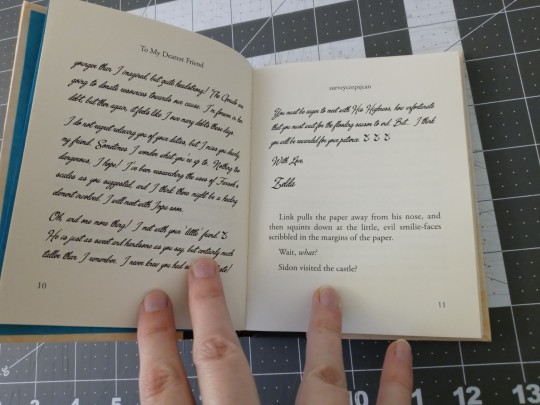 To My Dearest Friend
younger than I imagined, but quite headstrong! The Gerudo are
going to donate resources towards our cause. I'm forever in her
debt, but then again, it feels like I owe many debts these days.
I do not regret relieving you of your duties, but I miss you dearly,
my friend. Sometimes I wonder what you're up to. Nothing too
dangerous, I hope! I've been researching the uses of Farosh's
scales as you suggested, and I think there might be a healing
element involved. I will meet with Impa soon.
Oh, and one more thing! I met with your 'little' friend
He is just as sweet and handsome as you say, but certainly much
taller than I remember. I never knew you had
10
surveycorpsjean
You must be eager to meet with His Highness, how unfortunate
that you must wait for the flooding season to end. But... I think
you will be rewarded for your patience.
With Love,
Zeldie
Link pulls the paper away from his nose, and
then squints down at the little, evil smilie-faces
scribbled in the margins of the paper.
Wait, what?
Sidon visited the castle?
11
6
7
10
11
12
13